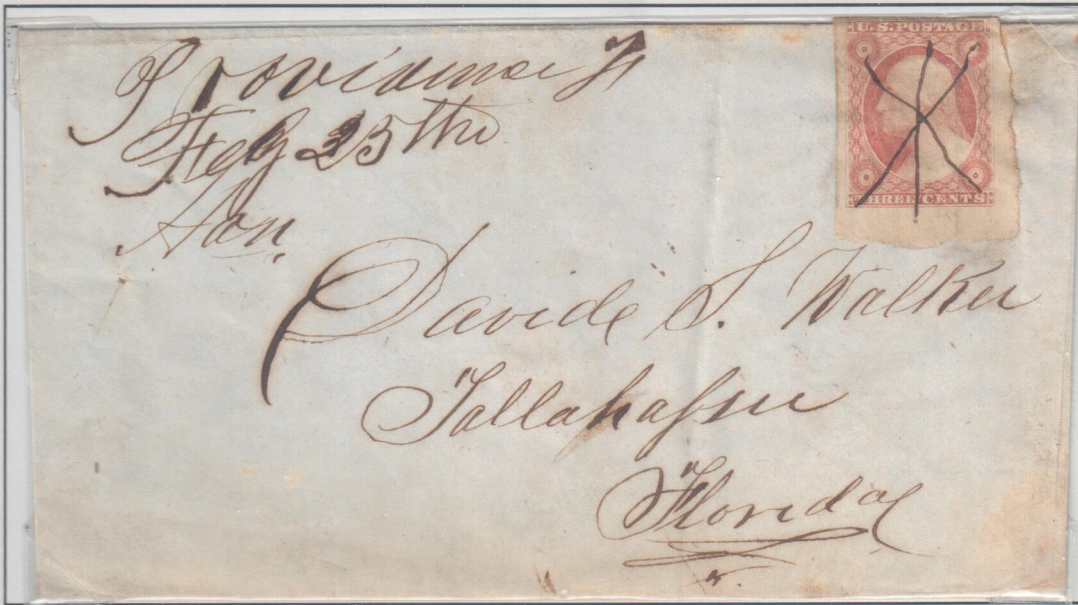 Providence F
Feby 25th
U.S. POSTAGE
THREE CENTS
Hon.
David S. Walker
Tallahassee
Florida